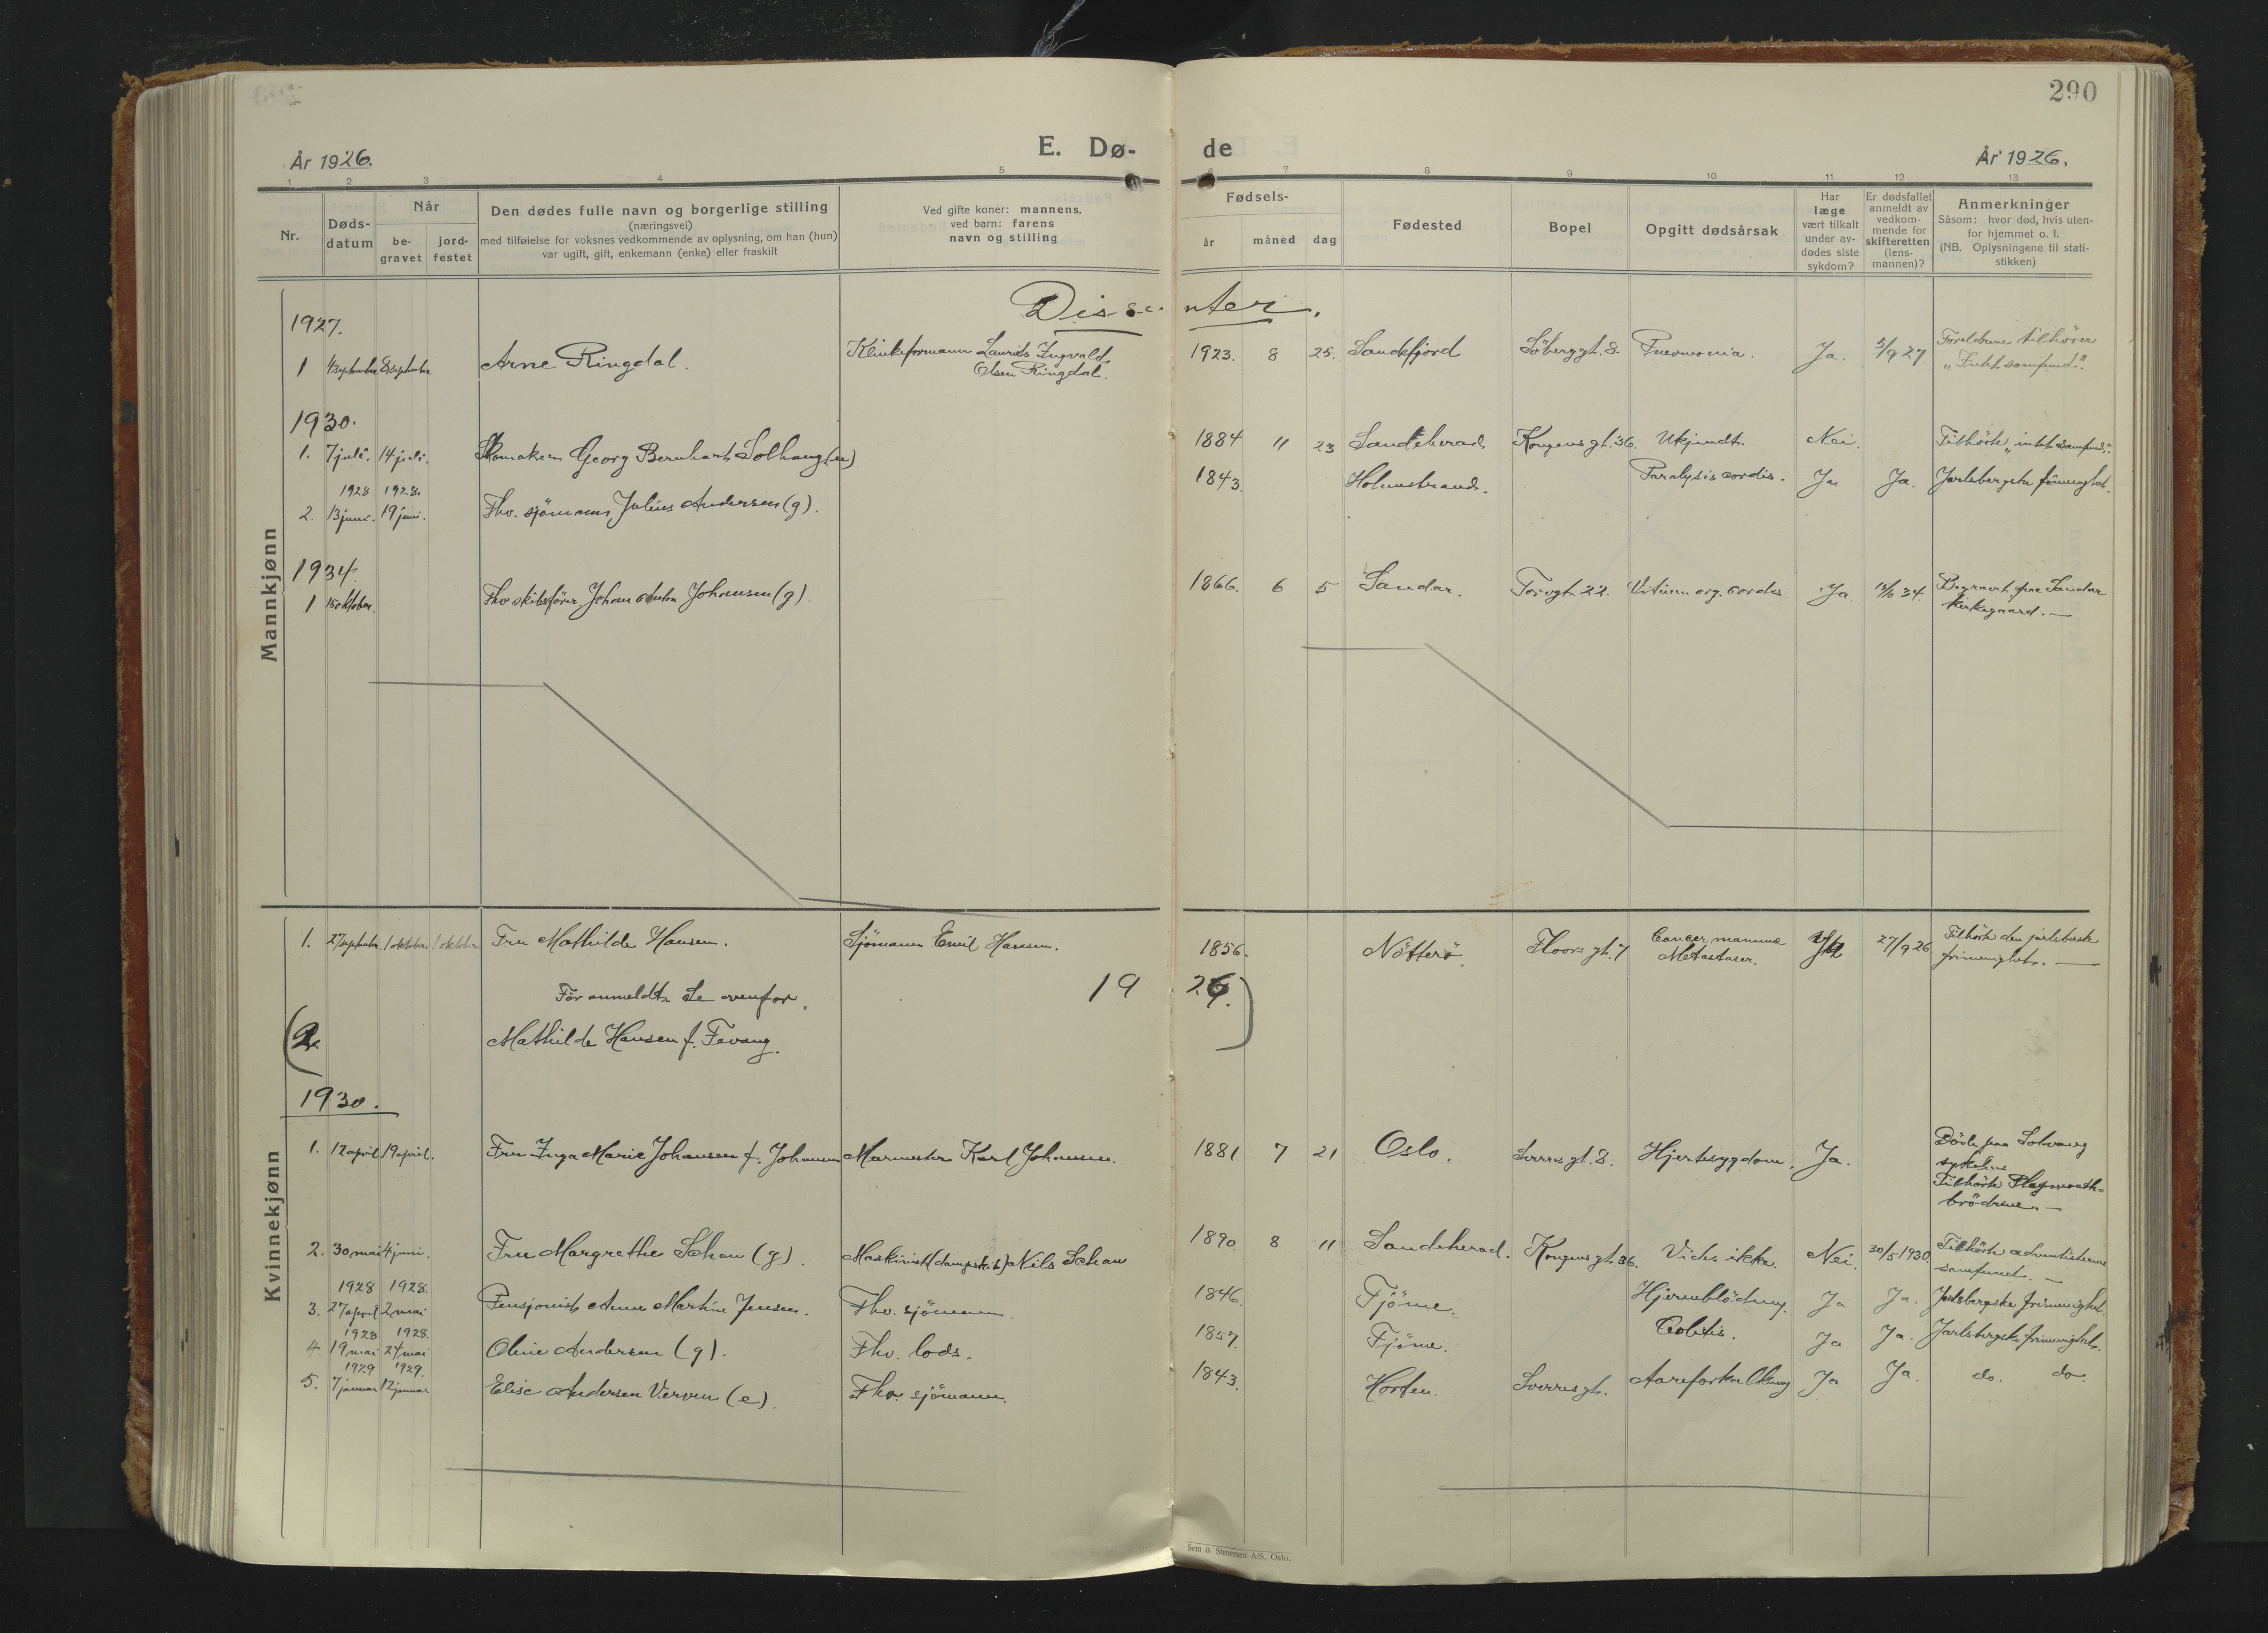 290
E. Dø- de
År 1926. År 1926.
1 2 3 4 5 6 7 8 9 10 11 12 13
Nr.
Døds-
datum
Når
be-
gravet
jord-
festet
Den dødes fulle navn og borgerlige stilling
(næringsvei)
med tilføielse for voksnes vedkommende av oplysning, om han (hun)
var ugift, gift, enkemann (enke) eller fraskilt
Ved gifte koner: mannens,
ved barn: farens
navn og stilling
Fødsels-
år måned dag
Fødested
Bopel
Opgitt dødsårsak
Har
læge
vært tilkalt
under av-
dødes siste
sykdom?
Er dødsfallet
anmeldt av
vedkom-
mende for
skifteretten
(lens-
mannen)?
Anmerkninger
Såsom: hvor død, hvis uten-
for hjemmet o. l.
(NB. Oplysningene til stati-
stikken)
Mannkjønn
Dissenter.
1927.
1 4 september 8 september Arne Ringdal. Klinkeformann Laurits Ingvald
Olsen Ringdal.
1923. 8 25. Sandefjord Söberggt. 8. Pneumonia. Ja. 5/9 27 Foreldrene tilhörer
"Intet samfund".
1930.
1. 7 juli. 14 juli. Skomaker Georg Bernhard Solhaug (u) 1884 11 23 Sandeherad Kongens gt. 36. Ukjendt. Nei. Tilhörte "intet samfund".
1928 1928.
2. 13 juni. 19 juni. Fhv. sjömann Julius Andersen (g). 1843. Holmestrand. Paralysis cordis. Ja Ja. Jarlsbergske frimenighet.
1934.
1 15 oktober. Fhv skibsfører Johan Anton Johansen (g). 1866. 6 5 Sandar. Torvgt. 22. Vitium org. cordis Ja. 34. Begravet fra Sandar
kirkegaard. —
Kvinnekjønn
1. 27 september. 1 oktober 1 oktober Fru Mathilde Hansen. Sjömann Emil Hansen. 1856. Nötterö. Floors gt. 7 Cancer mammae
Metastaser. Ja 27/9 26 Tilhörte den jarlsbergske
frimenighet. —
Før anmeldt. Se ovenfor. 19 26.
(2. Mathilde Hansen f. Fevang. )
1930.
1. 12 april 19 april. Fru Inga Marie Johansen f. Johansen Murmester Karl Johansen. 1881 7 21 Oslo. Sverres gt. 8. Hjertesygdom. Ja. Döde paa Solvang
sykehus
Tilhörte Playmouth-
brödrene. —
2. 30 mai 4 juni. Fru Margrethe Schau (g). Maskinist (dampskib) Nils Schau 1890 8 11 Sandeherad. Kongens gt. 36. Vides ikke. Nei. 30/5 1930. Tilhörte adventisternes
samfund. —
1928 1928.
3. 27 april 2 mai Pensjonist Anne Martine Jensen. Fhv. sjömann. 1846. Tjöme. Hjerneblödning. Ja Ja. Jarlsbergske frimenighet.
1928 1928.
4. 19 mai 24 mai Oline Andersen (g). Fhv. lods. 1857. Tjöme. Colitis. Ja Ja. Jarlsbergske frimenighet.
1929 1929.
5. 7 januar 12 januar Elise Andersen Verven (e). Fhv. sjömann. 1843. Horten. Sverres gt. Aareforkalkning Ja Ja. do. do.
Sem & Stenersen A/S, Oslo.